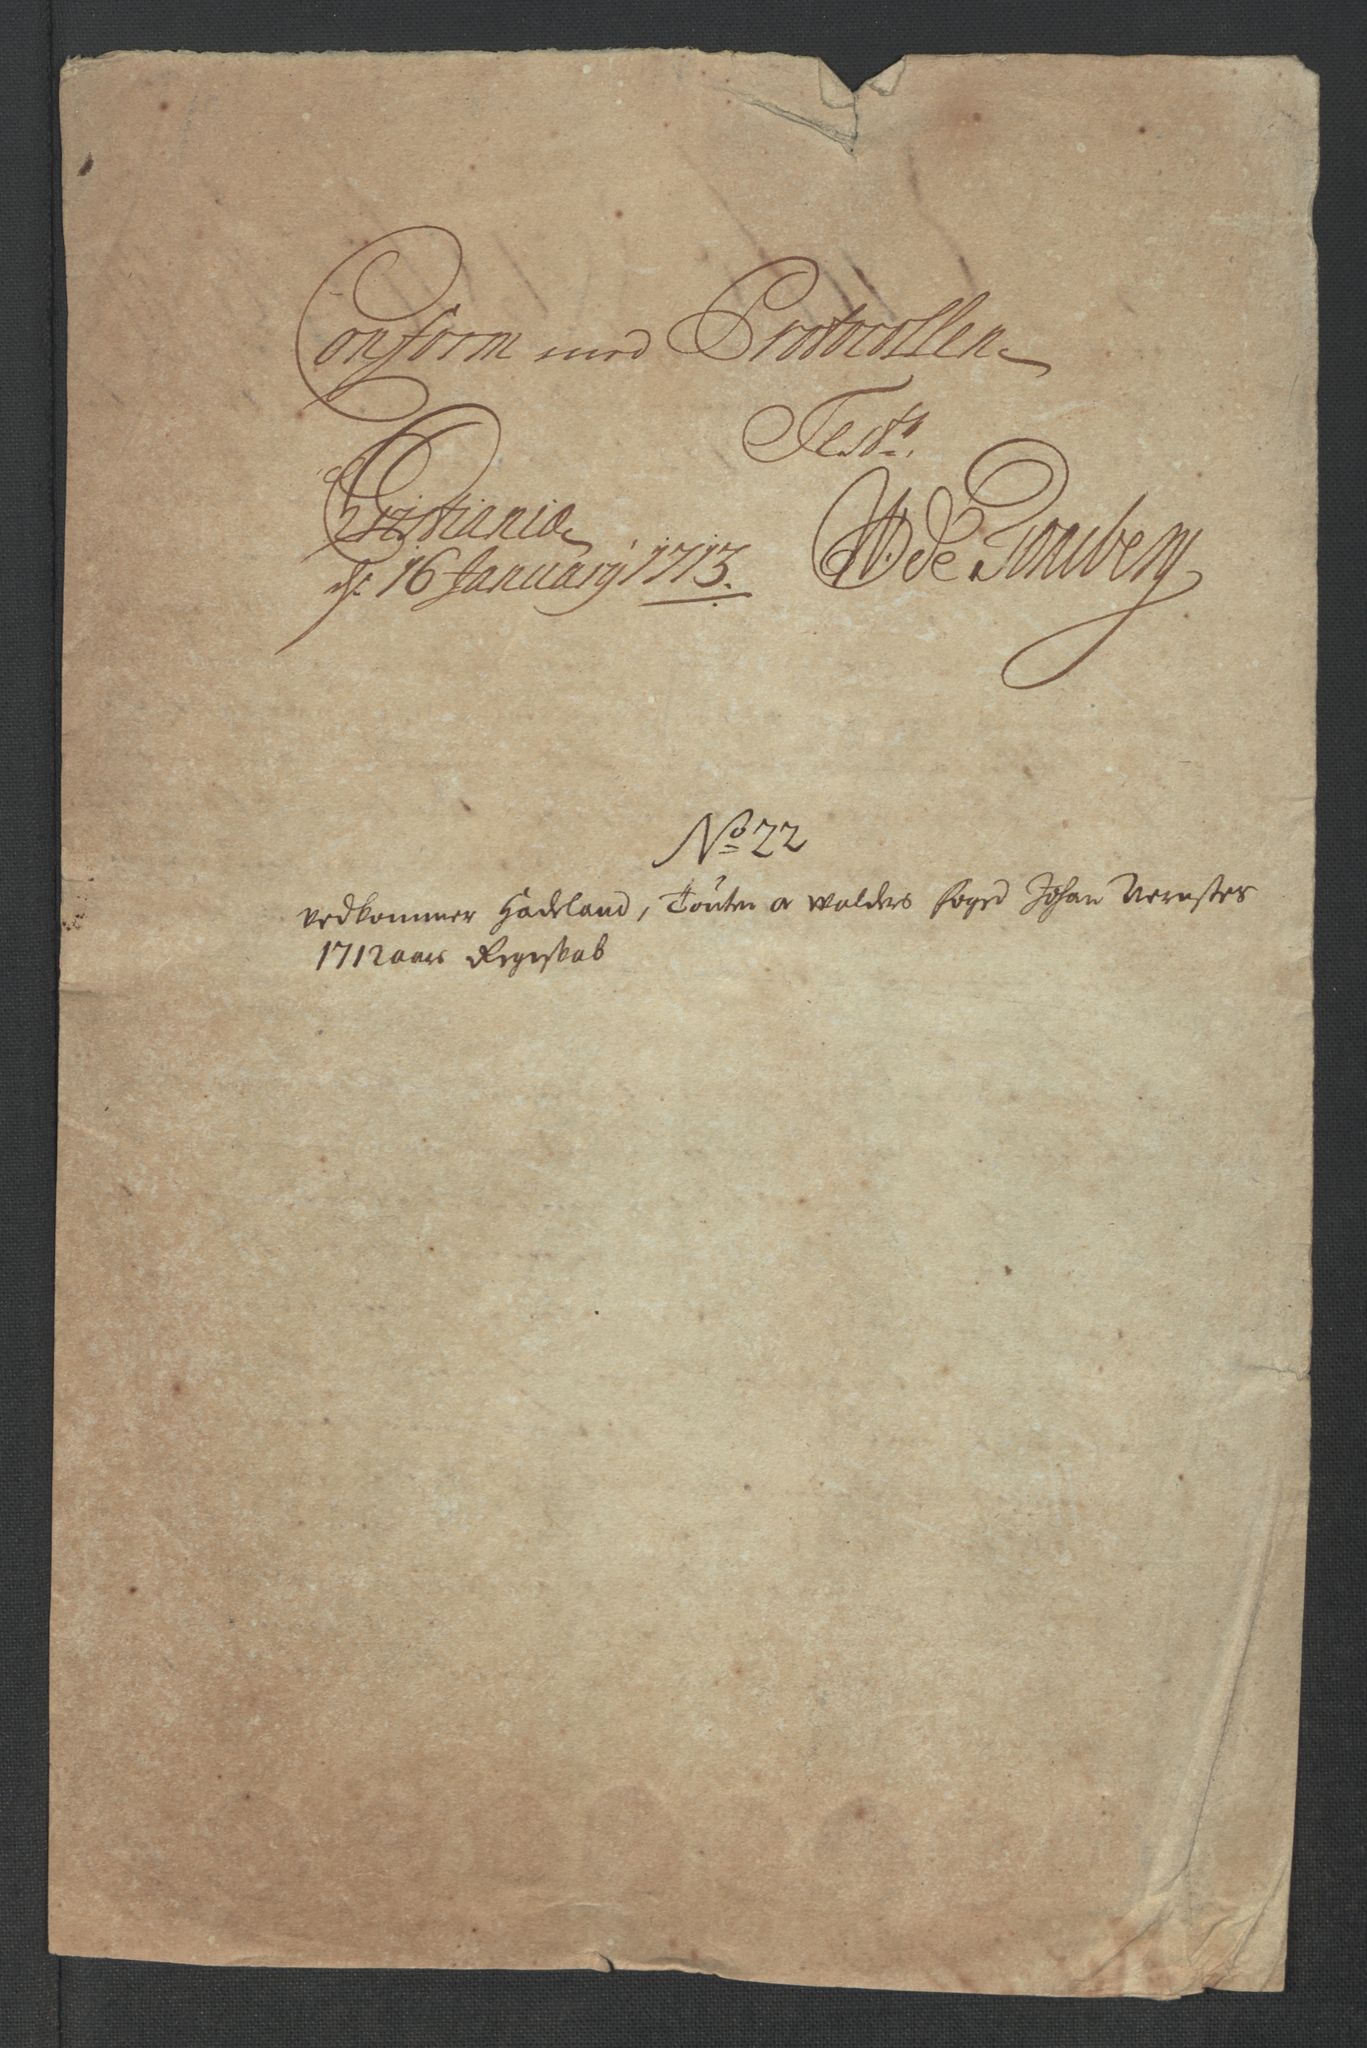 Conform med Protocollen
Test:
Christiania
d: 16 January 1713.
W: de Tonsberg
No 22
vedkommer Hadeland, Touten oc Walders foged Johan Vernsters
1712 aars Regnskab